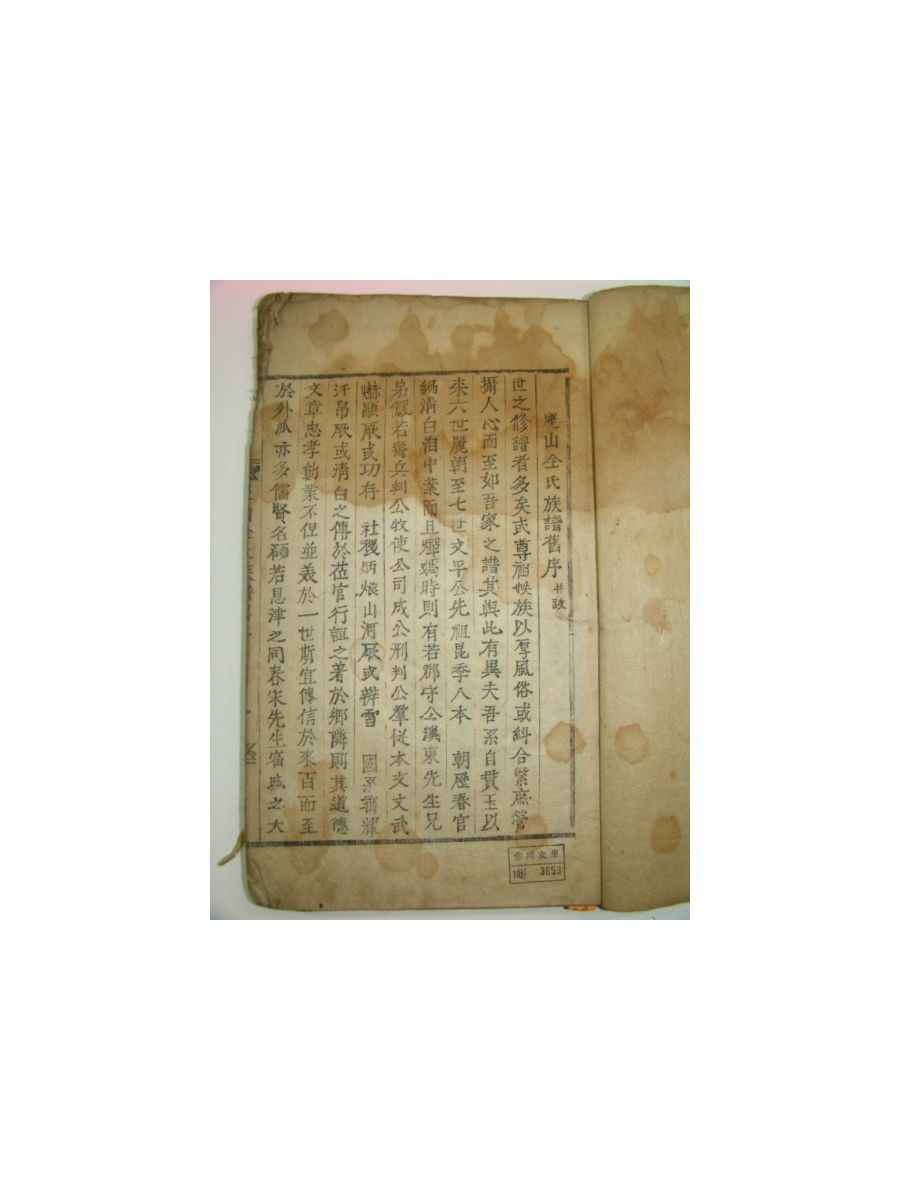 山全氏族譜舊序 并跋
世之修譜者多矣或尊祖收族以厚風俗或糾合繁庶管
攝人心而至如吾家之譜其與此有異夫吾系自貫玉以
来六世麗朝至七世文平公先祖昆季八本 朝歷春官
綿清白洎中葉而且輝嫣時則有若郡守公漢東先生兄
弟儼若齋兵判公牧使公司成公刑判公羣從本支文武
爀顯厥或功存 社稷炳烺山河厥或辨雪 國系霸耀
汗帛厥或清白之傳於莅官行誼之著於鄉隣則其道德
文章忠孝勳業不但並美於一世斯宜傳信於來百而至
於外派亦多儒賢名碩若恩津之同春宋先生宿城之大
文庫
No. 3653